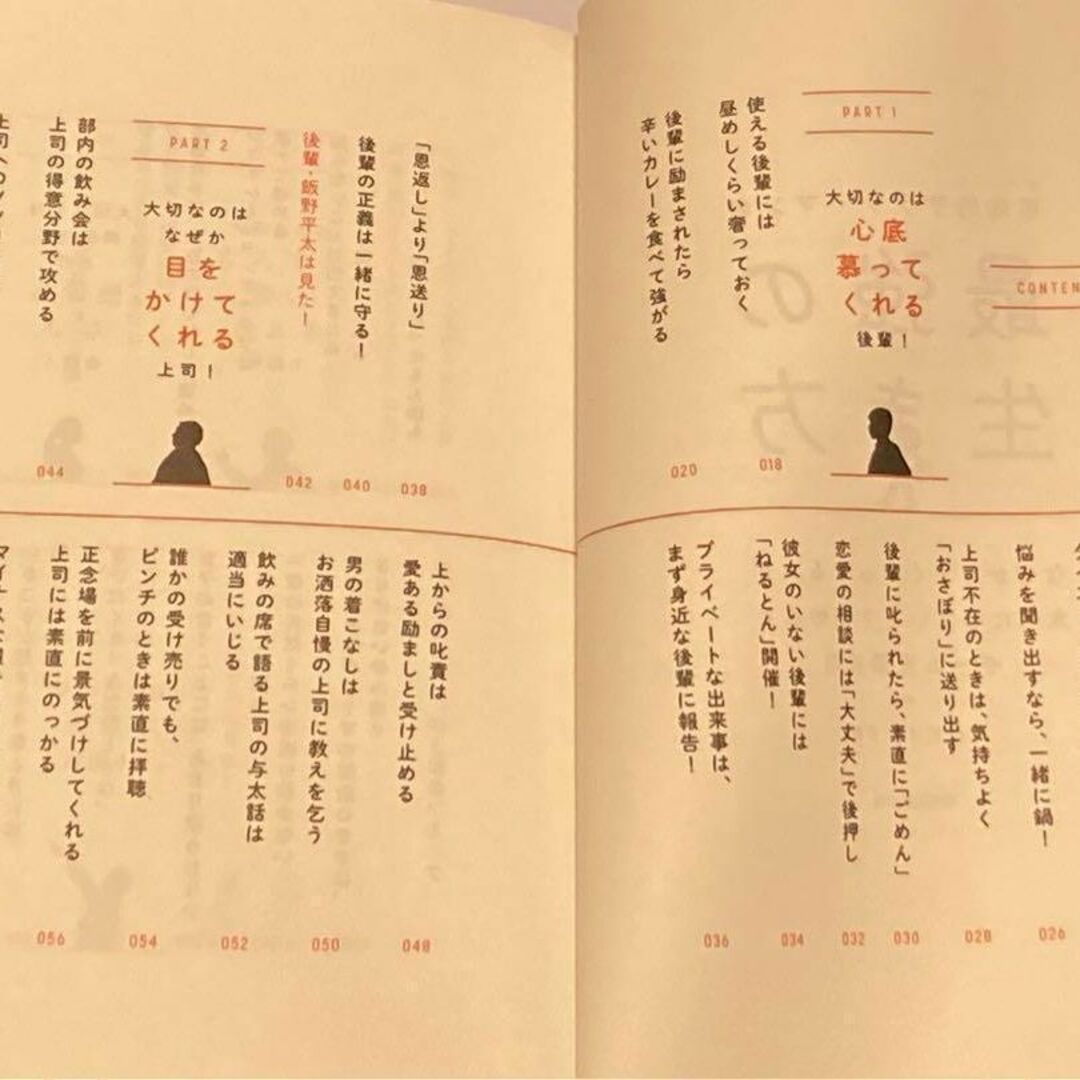 CONTEN
PART 1
大切なのは
心底
慕って
くれる
後輩！
使える後輩には
昼めしくらい奢っておく
018
後輩に励まされたら
辛いカレーを食べて強がる
020
悩みを聞き出すなら、一緒に鍋！
026
上司不在のときは、気持ちよく
「おさぼり」に送り出す
028
後輩に叱られたら、素直に「ごめん」
030
恋愛の相談には「大丈夫」で後押し
032
彼女のいない後輩には
「ねるとん」開催！
034
プライベートな出来事は、
まず身近な後輩に報告！
036
「恩返し」より「恩送り」
038
後輩の正義は一緒に守る！
040
後輩・飯野平太は見た！
042
PART 2
大切なのは
なぜか
目を
かけて
くれる
上司！
部内の飲み会は
上司の得意分野で攻める
044
上からの叱責は
愛ある励ましと受け止める
048
男の着こなしは
お洒落自慢の上司に教えを乞う
050
飲みの席で語る上司の与太話は
適当にいじる
052
誰かの受け売りでも、
ピンチのときは素直に拝聴
054
正念場を前に景気づけしてくれる
上司には素直にのっかる
056